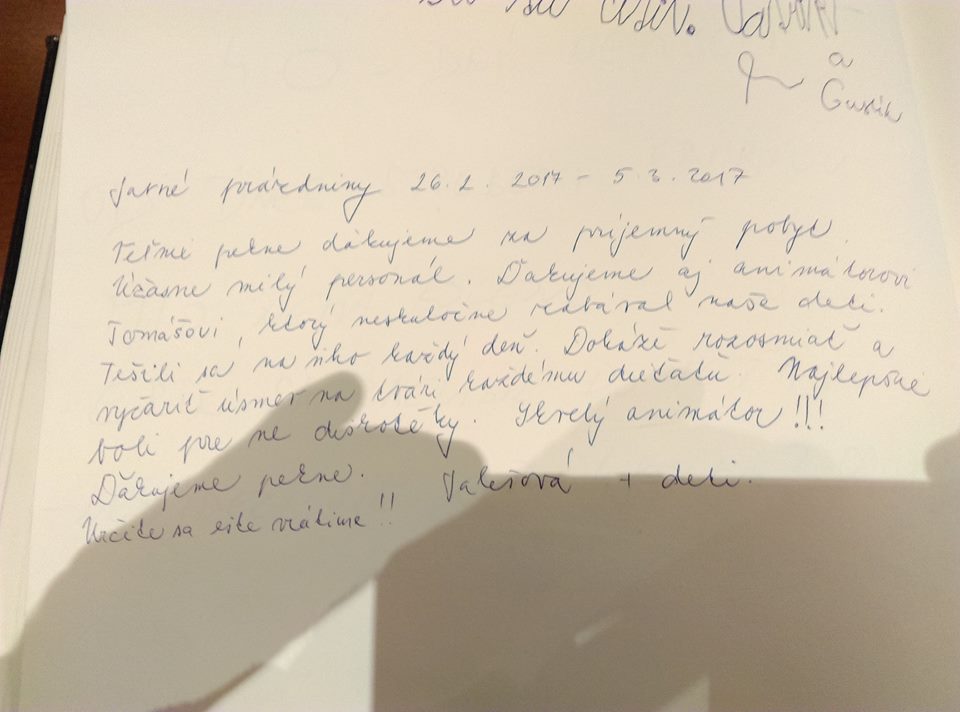 a
Jarné prázdniny 26.2. 2017 - 5.3.2017
Veľmi pekne ďakujeme za príjemný pobyt.
Úžasne milý personál. Ďakujeme aj animátorovi
Tomášovi, ktorý neskutočne zabával naše deti.
Tešili sa na ňho každý deň. Dokáže rozosmiať a
vyčariť úsmev na tvári každému dieťaťu. Najlepšie
boli pre ne diskotéky. Skvelý animátor!!!
Ďakujeme pekne. + deti.
Určite sa ešte vrátime!!